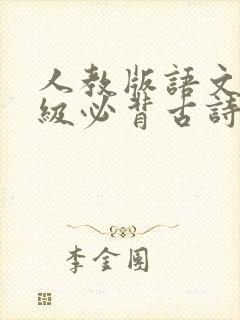 人教版語文
級必背古詩
李金團